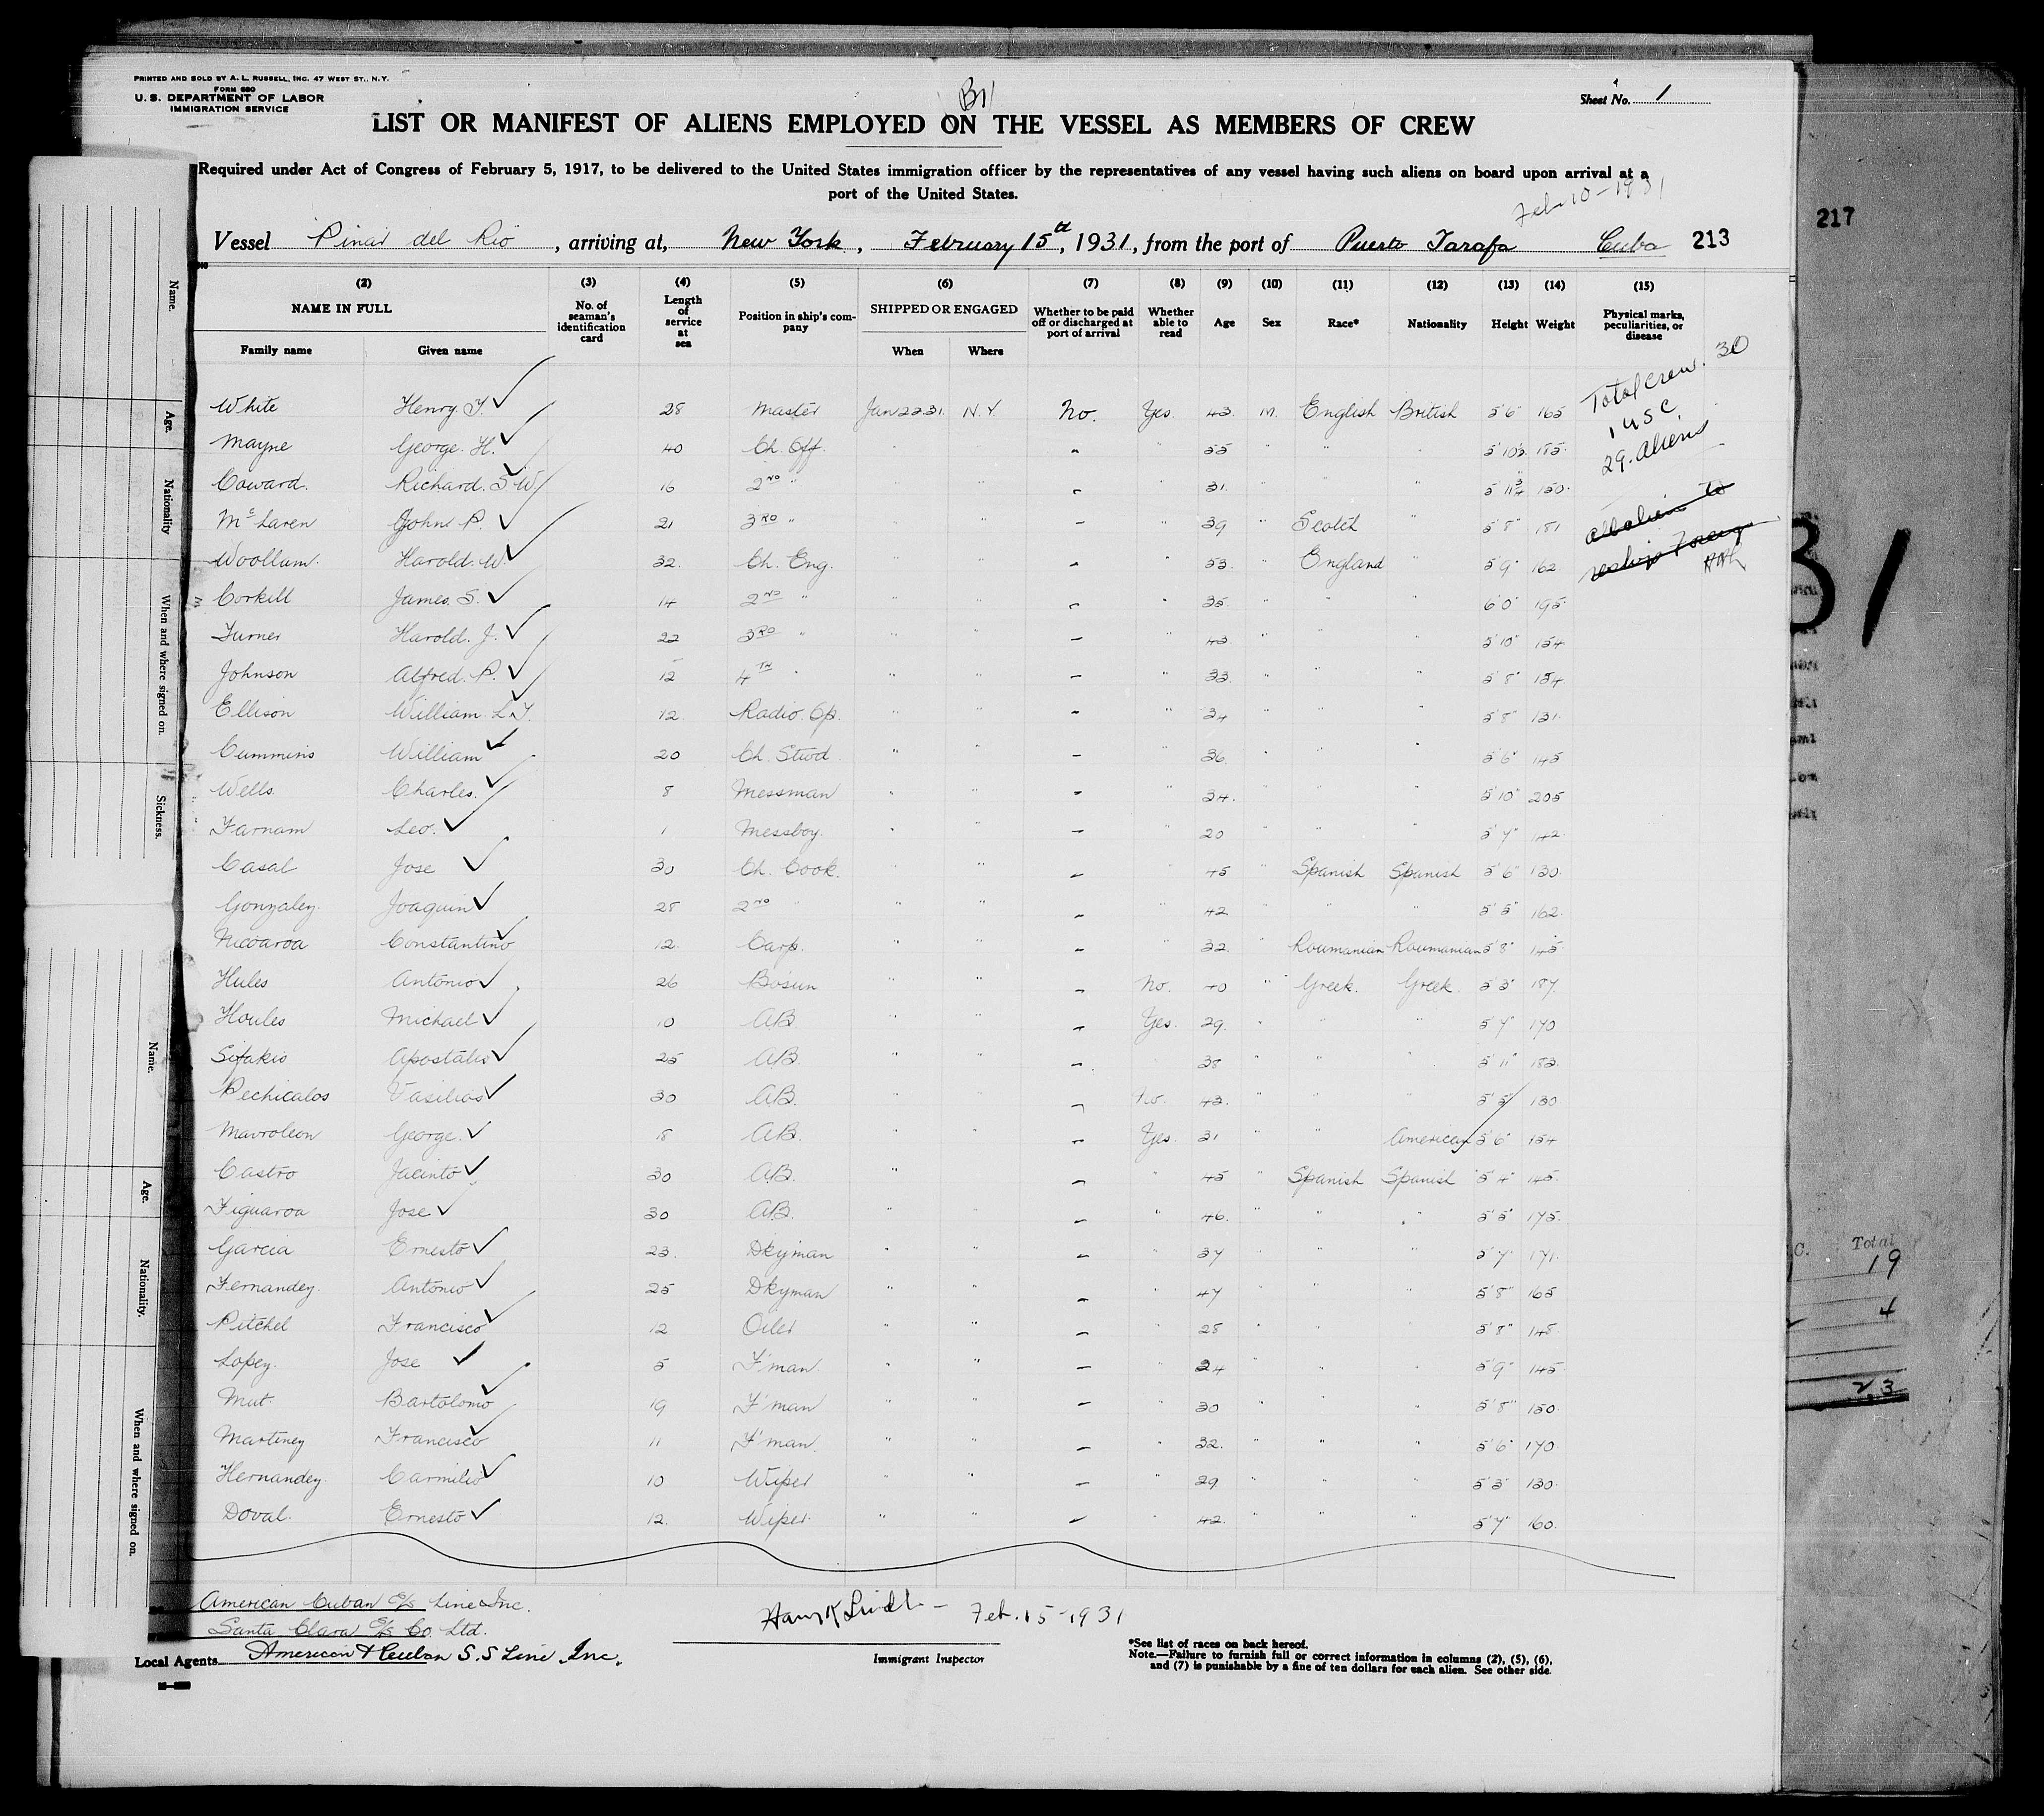 PRINTED AND SOLD BY A. L. RUSSELL, INC. 47 WEST ST., N.Y.
FORM 680
U. S. DEPARTMENT OF LABOR
IMMIGRATION SERVICE
Sheet No. 1
LIST OR MANIFEST OF ALIENS EMPLOYED ON THE VESSEL AS MEMBERS OF CREW
Required under Act of Congress of February 5, 1917, to be delivered to the United States immigration officer by the representatives of any vessel having such aliens on board upon arrival at a
port of the United States.
Feb 10-1931
Vessel Pinar del Rio, arriving at, New York, February 15th, 1931, from the port of Puerto Tarafa Cuba 213
217
(2) (3) (4) (5) (6) (7) (8) (9) (10) (11) (12) (13) (14) (15)
NAME IN FULL No. of seaman's identification card Length of service at sea Position in ship's company SHIPPED OR ENGAGED Whether to be paid off or discharged at port of arrival Whether able to read Age Sex Race* Nationality Height Weight Physical marks, peculiarities, or disease
Family name Given name When Where
Total Crew. 30
1 USC.
29. Aliens
White Henry. T. ✓ 28 Master Jan 22 31. N.Y. No. Yes. 43. M. English British 5'6" 165
Mayne George. H. ✓ 40 Ch. Off. " 55 " " " 5'10½ 185.
Coward. Richard. S.W. ✓ 16 2ND " 31. " " " 5'11¾ 150.
McLaren John P. ✓ 21 3RD " " – " 39 " Scotch 5'8" 181
Woollam. Harold. W. ✓ 32. Ch. Eng. – " 53. " England " 5'9" 162
Corkill James. S. ✓ 14 2ND " " " – " 35. " " " 6'0" 195.
Turner Harold. J. ✓ 22 3RD " " " – " 43. " " " 5'10" 154
Johnson Alfred. P. ✓ 12 4TH " " " – " 33. " " " 5'8" 154.
Ellison William. L.T. ✓ 12. Radio. Op. " " – " 34 " " " 5'8" 131.
Cummins William ✓ 20 Ch. Stwd. " " – " 36. " " " 5'6" 145
Wells. Charles. ✓ 8 Messman " " – " 34. " " " 5'10" 205
Farnam Leo. ✓ 1 Messboy. " " – " 20 " " " 5'7" 142.
Casal Jose ✓ 30 Ch. Cook. " – " 45 " Spanish Spanish 5'6" 130.
Gonzalez. Joaquin ✓ 28 2ND " " " – " 42. " " " 5'5" 162.
Constantino ✓ 12. Carp. " " – " 32. " Roumanian Roumanian 5'8" 145
Hules Antonio ✓ 26 Bosun " " – No. 40 " Greek. Greek. 5'3" 187.
Houles Michael ✓ 10 AB. " " – Yes. 29. " " " 5'7" 170
Sifakis Apostalis ✓ 25 AB. " " – " 38 " " " 5'11" 183.
Pechicalos Vasilios ✓ 30 AB. " " – No. 43. " " " 5'5" 130
Mavroleon George. ✓ 18 AB. " " – Yes. 31 " " American 5'6" 154
Castro Jacinto ✓ 30 AB. " – " 45 " Spanish Spanish 5'4" 145.
Figuaroa Jose ✓ 30 AB. " " – " 46. " " " 5'5" 175.
Garcia Ernesto ✓ 23. Dkyman " " – " 37 " " " 5'7" 171.
Fernandez. Antonio ✓ 25 Dkyman " " – " 47 " " " 5'8" 165
Pitchel Francisco ✓ 12 Oiler " " – " 28 " " " 5'8" 145.
Lopez. Jose ✓ 5 F'man. " " – " 24 " " " 5'9" 145
Mut. Bartolomo ✓ 19 F'man " " – " 30 " " " 5'8" 150.
Martinez Francisco ✓ 11 F'man. " " – " 32. " " " 5'6" 170
Hernandez. Carmilio ✓ 10 Wiper " " – " 29 " " " 5'3" 130.
Doval. Ernesto ✓ 12. Wiper. " " – " 42. " " " 5'7" 160.
American Cuban S/S Line Inc.
Santa Clara S/S Co. Ltd.
Local Agents American & Cuban S.S Line, Inc.
Feb. 15-1931
Immigrant Inspector
*See list of races on back hereof.
Note.—Failure to furnish full or correct information in columns (2), (5), (6),
and (7) is punishable by a fine of ten dollars for each alien. See other side.
Name.
Age.
Nationality
When and where signed on.
Sickness.
Name.
Age.
Nationality.
When and where signed on.
31
C. Total
19
4
23